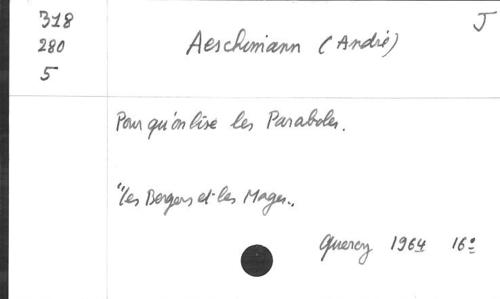 318
280
5
J
Aeschimann (André)
Pour qu'on lise les Paraboles.
"Les Bergers et les Mages"
Quercy 1964 16º